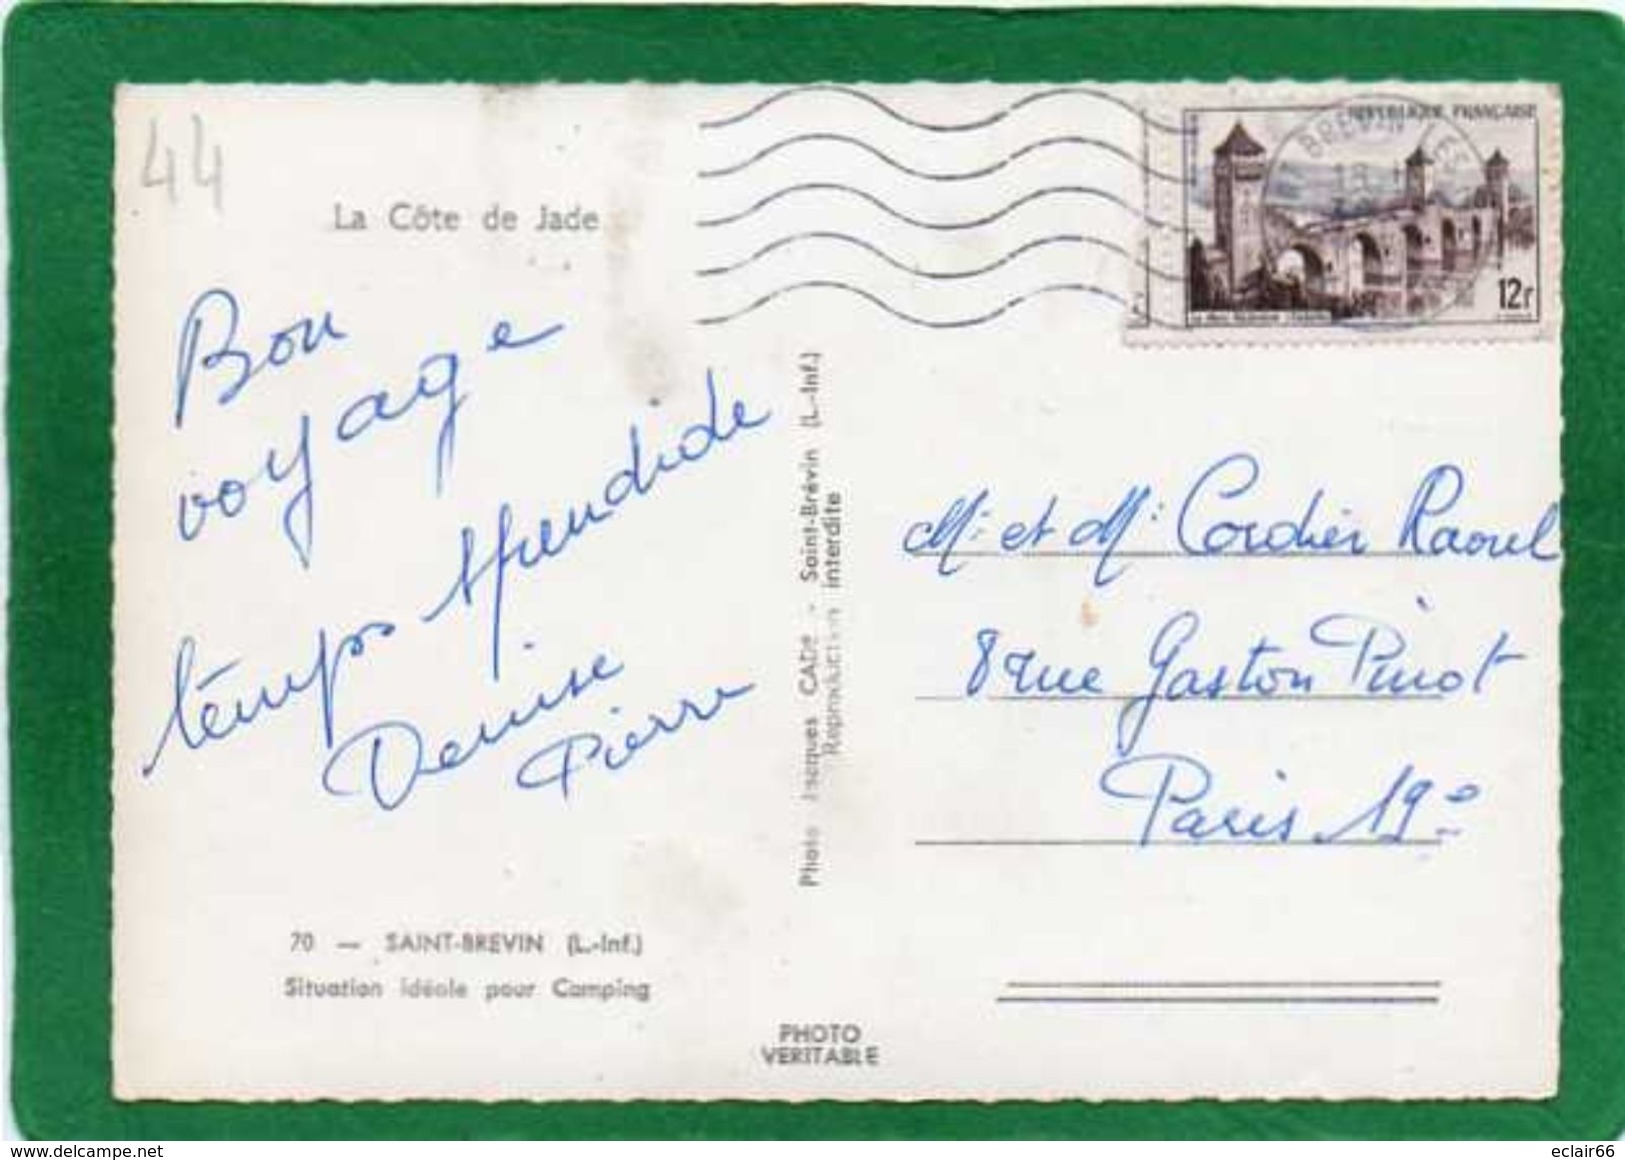 44
La Côte de Jade
Bon
voyage
temps splendide
Denise
Pierre
70 — SAINT-BREVIN (L.-Inf.)
Situation idéale pour Camping
PHOTO
VERITABLE
Photo Jacques CADE - Saint-Brévin (L.-Inf.)
Reproduction interdite
REPUBLIQUE FRANÇAISE
12F
BREVIN
Mr et Mr Cordier Raoul
8 rue Gaston Pinot
Paris 19e
eclair66